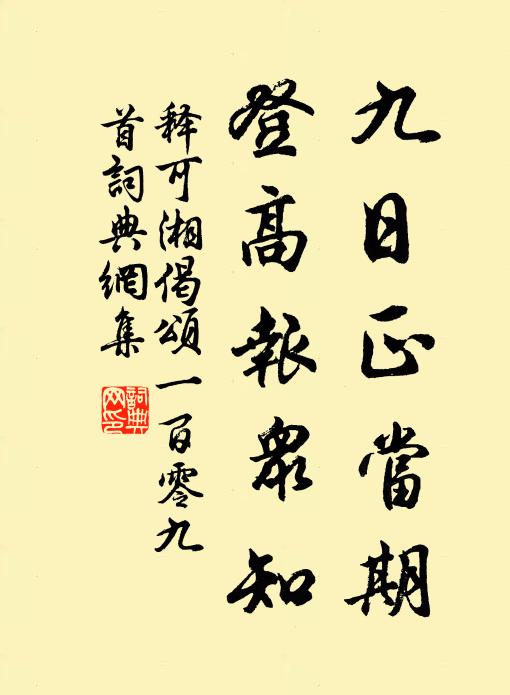 九日正當期
登高報眾知
释可湘偈頌一百零九
首詞典網集
詞典
网印